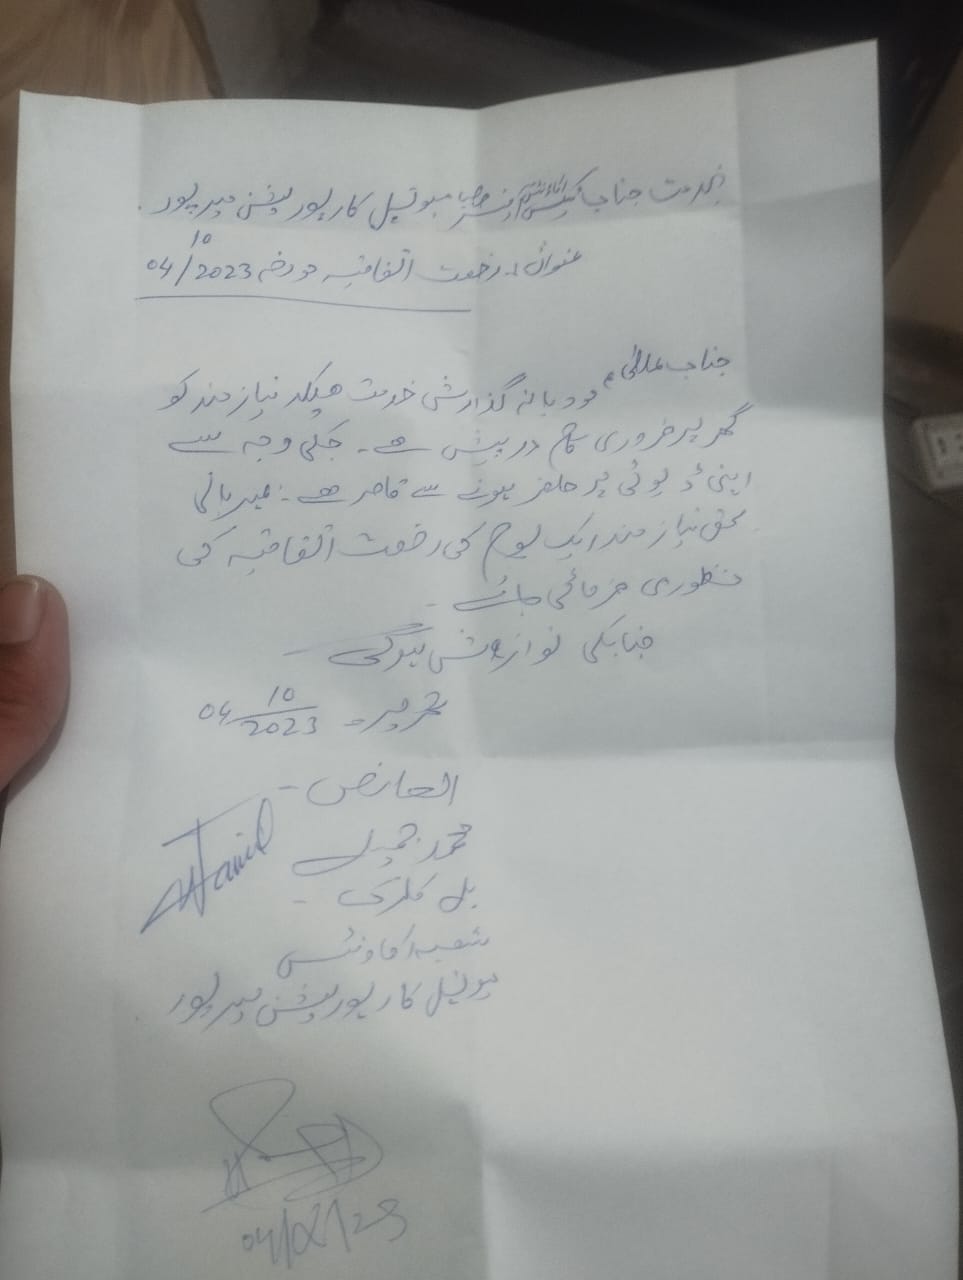 بخدمت جناب آفیسر صاحب میونسپل کارپوریشن میرپور۔
عنوان :۔ رخصت اتفاقیہ مورخہ 04/10/2023
جناب عالی!
مودبانہ گذارش خدمت ہیکہ نیازمند کو
گھر پر ضروری کام درپیش ہے۔ جسکی وجہ سے
اپنی ڈیوٹی پر حاضر ہونے سے قاصر ہے۔ مہربانی
بحق نیازمند ایک یوم کی رخصت اتفاقیہ کی
منظوری فرمائی جائے۔
جنابکی نوازش ہوگی
تحریر۔ 04/10/2023
العارض۔
محمد جمیل
Jamil
بل کلرک۔
شعبہ اکاونٹس
میونسپل کارپوریشن میرپور۔